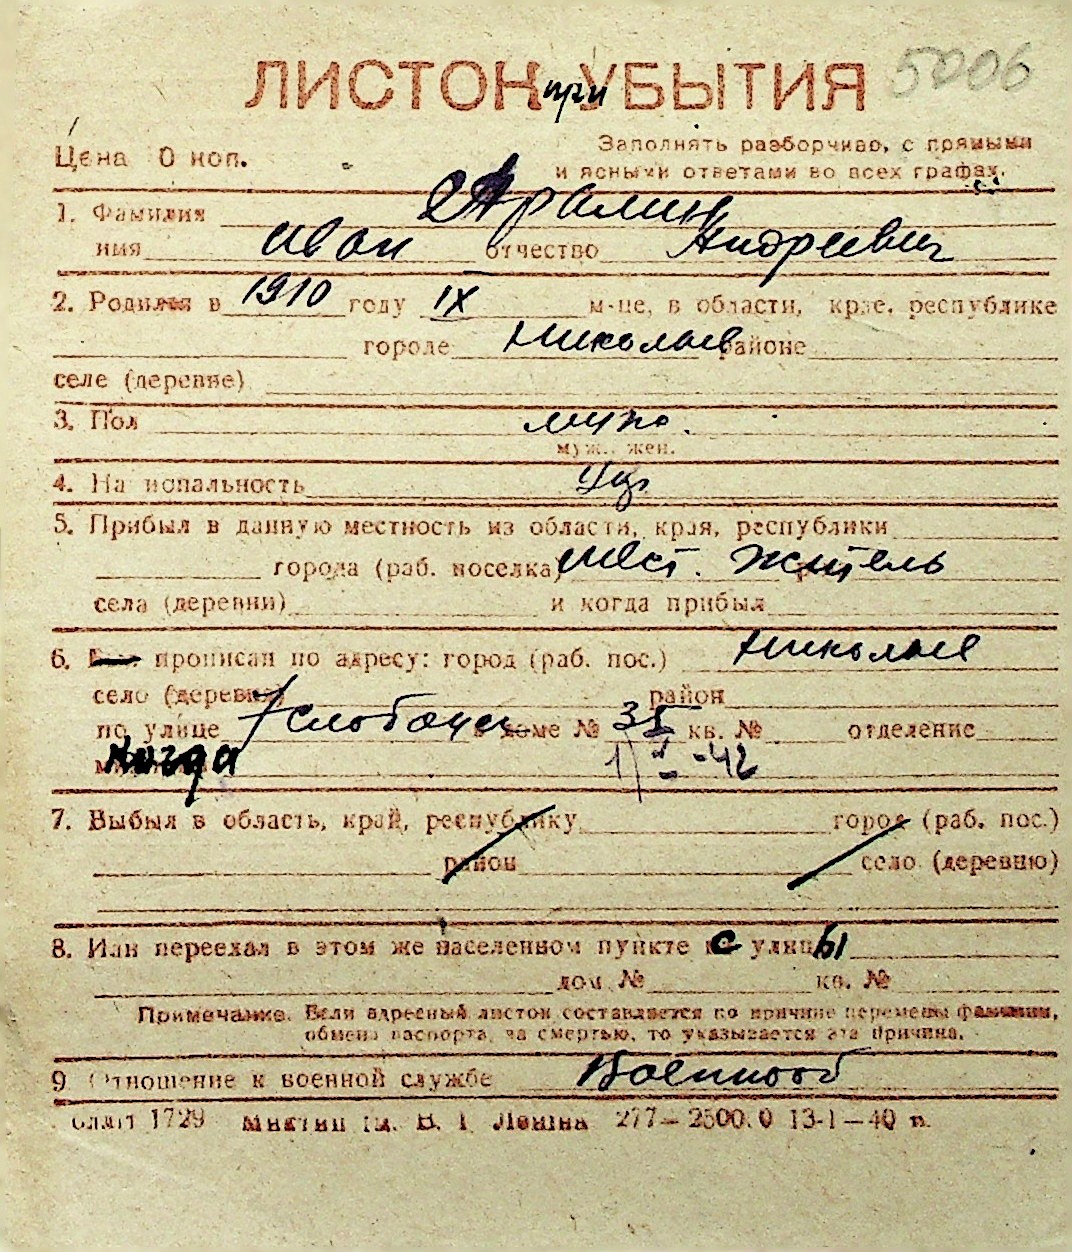 ЛИСТОК при УБЫТИЯ 5006
Цена 0 коп.
Заполнять разборчиво, с прямыми
и ясными ответами во всех графах.
1. Фамилия
имя Иван отчество Андреевич
2. Родился в 1910 году IX м-це, в области, крае, республике
городе Николаев районе
селе (деревне)
3. Пол муж.
муж., жен.
4. Национальность Укр.
5. Прибыл в данную местность из области, края, республики
города (раб. поселка) мест. житель
села (деревни) и когда прибыл
6. прописан по адресу: город (раб. пос.) Николаев
село (деревня) район
по улице 7 Слободск в доме № 35 кв. № отделение
когда 1/X-42
7. Выбыл в область, край, республику город (раб. пос.)
район село (деревню)
8. Или переехал в этом же населенном пункте с улицы
дом № кв. №
Примечание. Если адресный листок составляется по причине перемены фамилии,
обмена паспорта, за смертью, то указывается эта причина.
9. Отношение к военной службе Военнооб
1729 им. В. І. Леніна 277—2500.0 13-1—40 п.